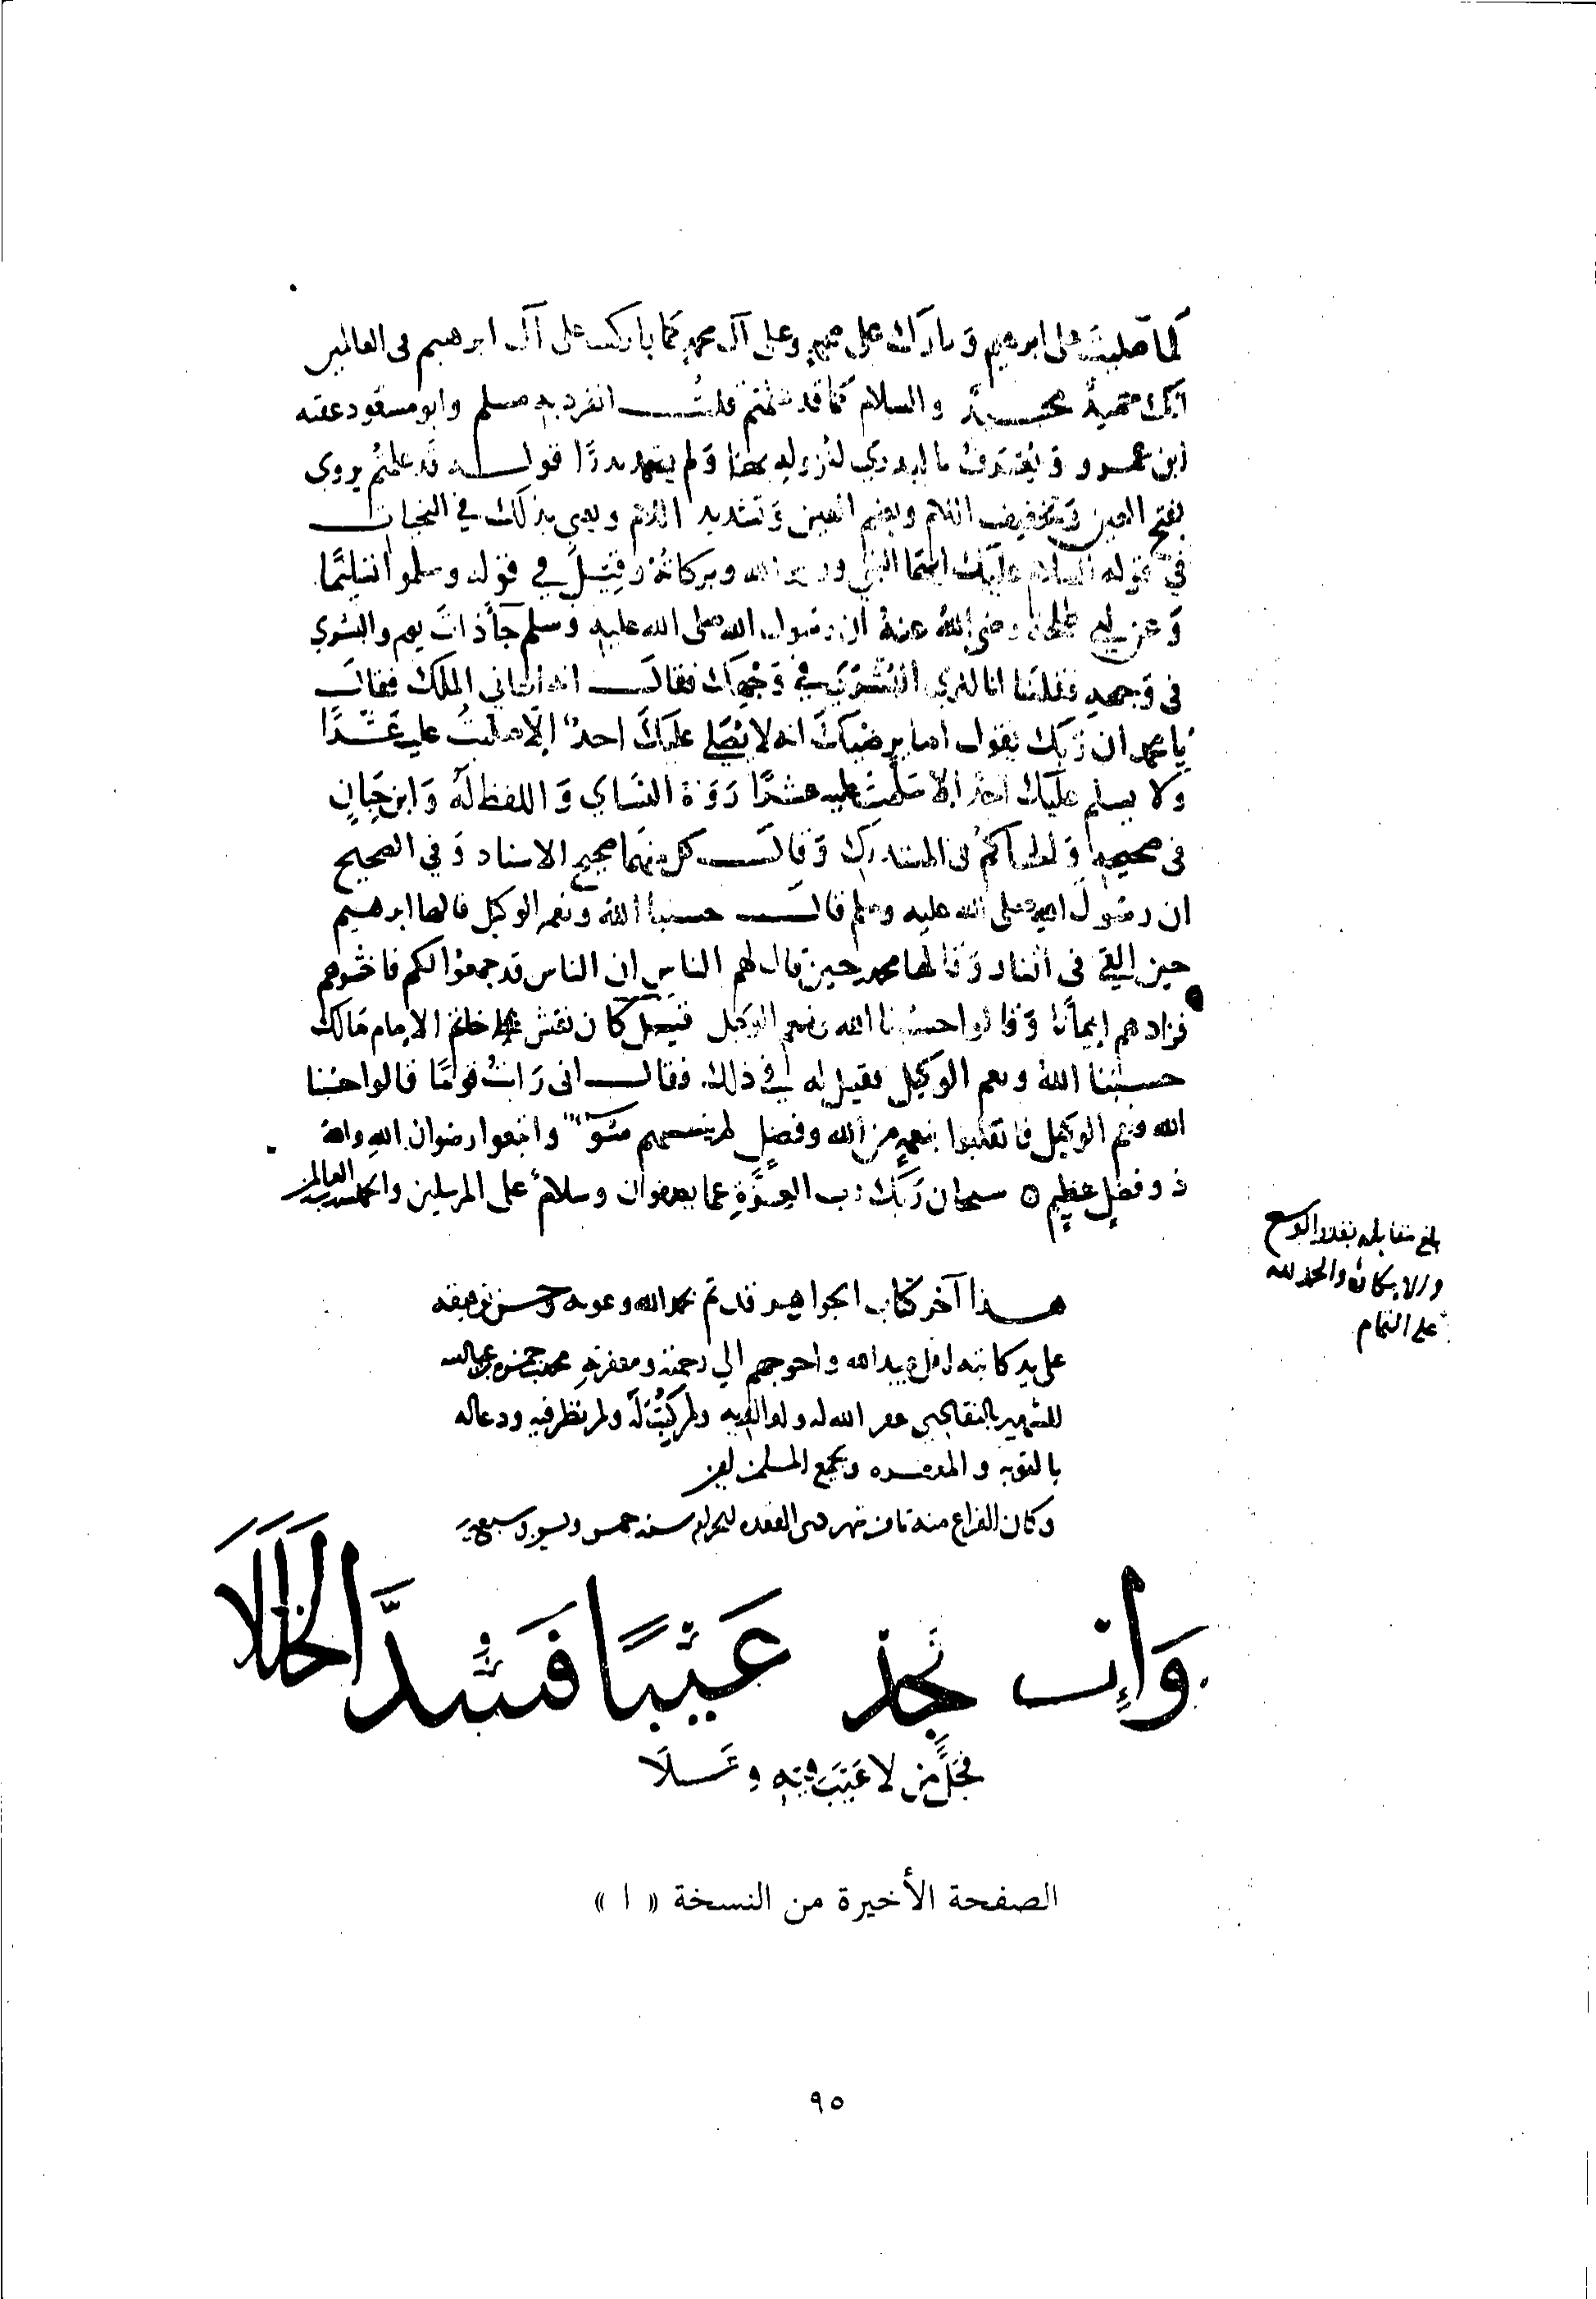 كما صليت على ابرهيم وبارك على محمد وعلى آل محمد كما باركت على آل ابرهيم فى العالمين
انك حميد مجيد والسلام كما قد علمتم قلت انفرد به مسلم وابو مسعود عقبه
ابن عمرو ويعرف بالبدري لنزوله ولم يشهد بدرًا قوله قد علمتم يروى
بفتح العين وتخفيف اللام وبضم العين وتشديد اللام ويعني بذلك في التحيات
في قوله السلام عليك ايها النبي ورحمة الله وبركاته وقيل في قوله وسلموا تسليمًا
وعن ابي طلحة رضي الله عنه ان رسول الله صلى الله عليه وسلم جآ ذات يوم والبشرى
فى وجهه فقلنا انا لنرى البشرى في وجهك فقال انه اتاني الملك فقال
يا محمد ان ربك يقول اما يرضيك انه لا يصلي عليك احد الا صليت عليه عشرًا
ولا يسلم عليك احد الا سلمت عليه عشرًا رواه النساي واللفظ له وابن حبان
فى صحيحه والحاكم فى المستدرك وقال كل منهما صحيح الاسناد وفي الصحيح
ان رسول الله صلى الله عليه وسلم قال حسبنا الله ونعم الوكيل قالها ابرهيم
حين القي فى النار وقالها محمد حين قال لهم الناس ان الناس قد جمعوا لكم فاخشوهم
فزادهم ايمانا وقالوا حسبنا الله ونعم الوكيل قيل كان نقش خاتم الامام مالك
حسبنا الله ونعم الوكيل فقيل له في ذلك فقال انى رايت قومًا قالوا حسبنا
الله ونعم الوكيل فانقلبوا بنعمة من الله وفضل لم يمسسهم سوء واتبعوا رضوان الله والله
ذو فضل عظيم ه سبحان ربك رب العزة عما يصفون وسلام على المرسلين والحمد لله رب العالمين
بلغ مقابله بقدر الوسع
والامكان والحمد لله
على التمام
هذا آخر كتاب الجواهر قد تم بحمد الله وعونه وحسن توفيقه
على يد كاتبه اقل عبيد الله واحوجهم الى رحمته ومغفرته محمد بن حمزه بن عبد الله
الشهير غفر الله له ولوالديه ولمن كتب له ولمن نظر فيه ودعا له
بالتوبه والمغفره ولجميع المسلمين امين
وكان الفراغ منه ثامن شهر ذى القعده الحرام سنه خمس وسبعين
وَإِن تَجِدْ عَيْبًا فَسُدَّ الخَلَلَا
فجَلَّ مَن لا عَيْبَ فيه وعَلَا
الصفحة الأخيرة من النسخة « ا »
٩٥